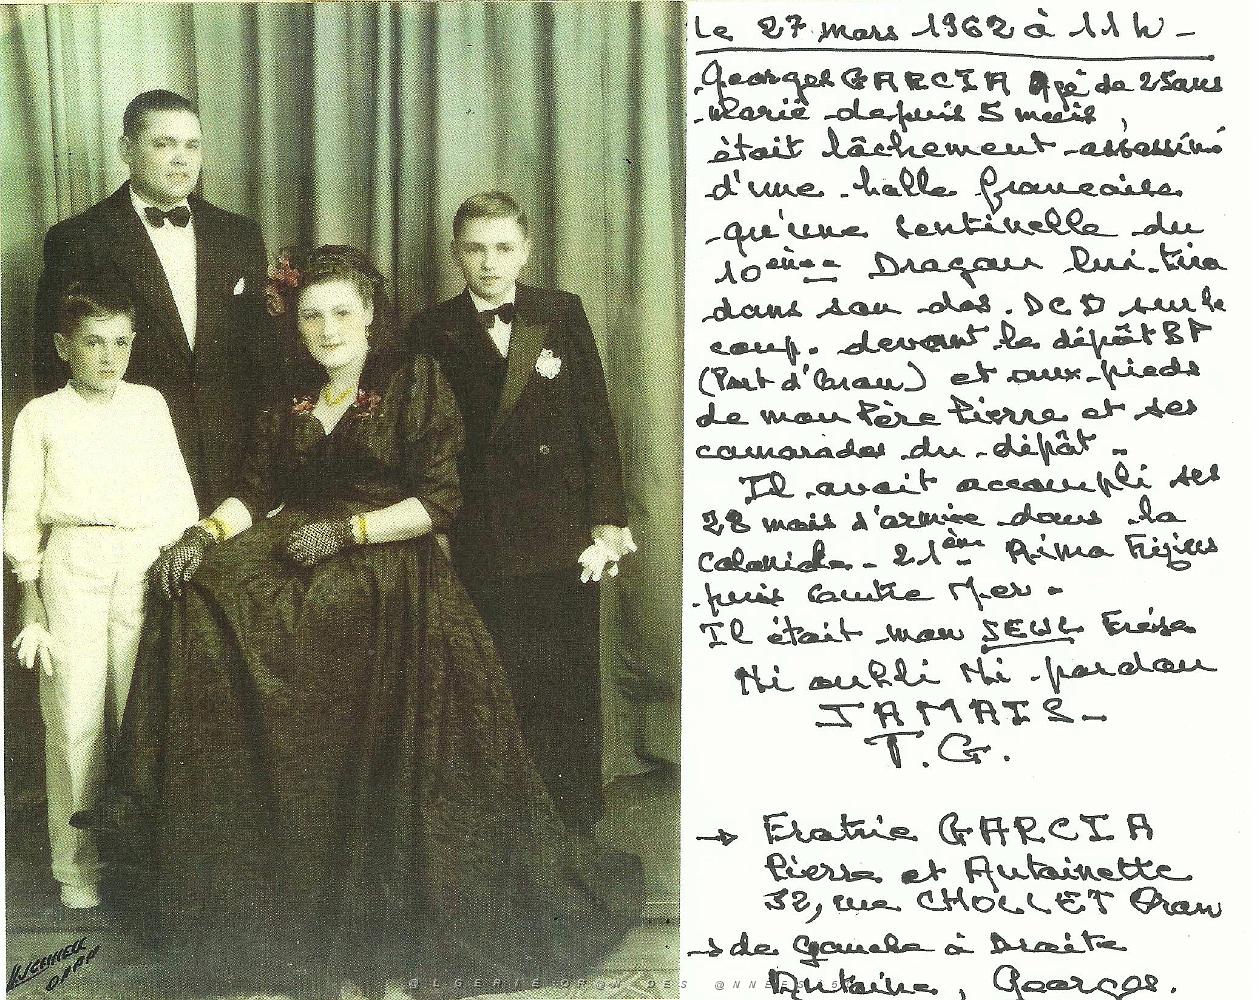 Le 27 mars 1962 à 11h -
Georges GARCIA Agé de 25 ans
marié depuis 5 mois,
était lâchement assassiné
d'une balle française
qu'une sentinelle du
10ème Dragon lui tira
dans son dos. DCD sur le
coup. devant le dépôt BP
(Port d'Oran) et aux pieds
de mon Père Pierre et ses
camarades du dépôt -
Il avait accompli ses
28 mois d'armée dans la
Coloniale - 21ème Rima Fréjus
puis Outre Mer -
Il était mon SEUL Frère
Ni oubli Ni pardon
JAMAIS -
T.G.
→ Fratrie GARCIA
Pierre et Antoinette
32, rue CHOLLET Oran
→ de Gauche à Droite
Antoine, Georges.
ORAN
@LGERIE OR@N DES @NNEES 5